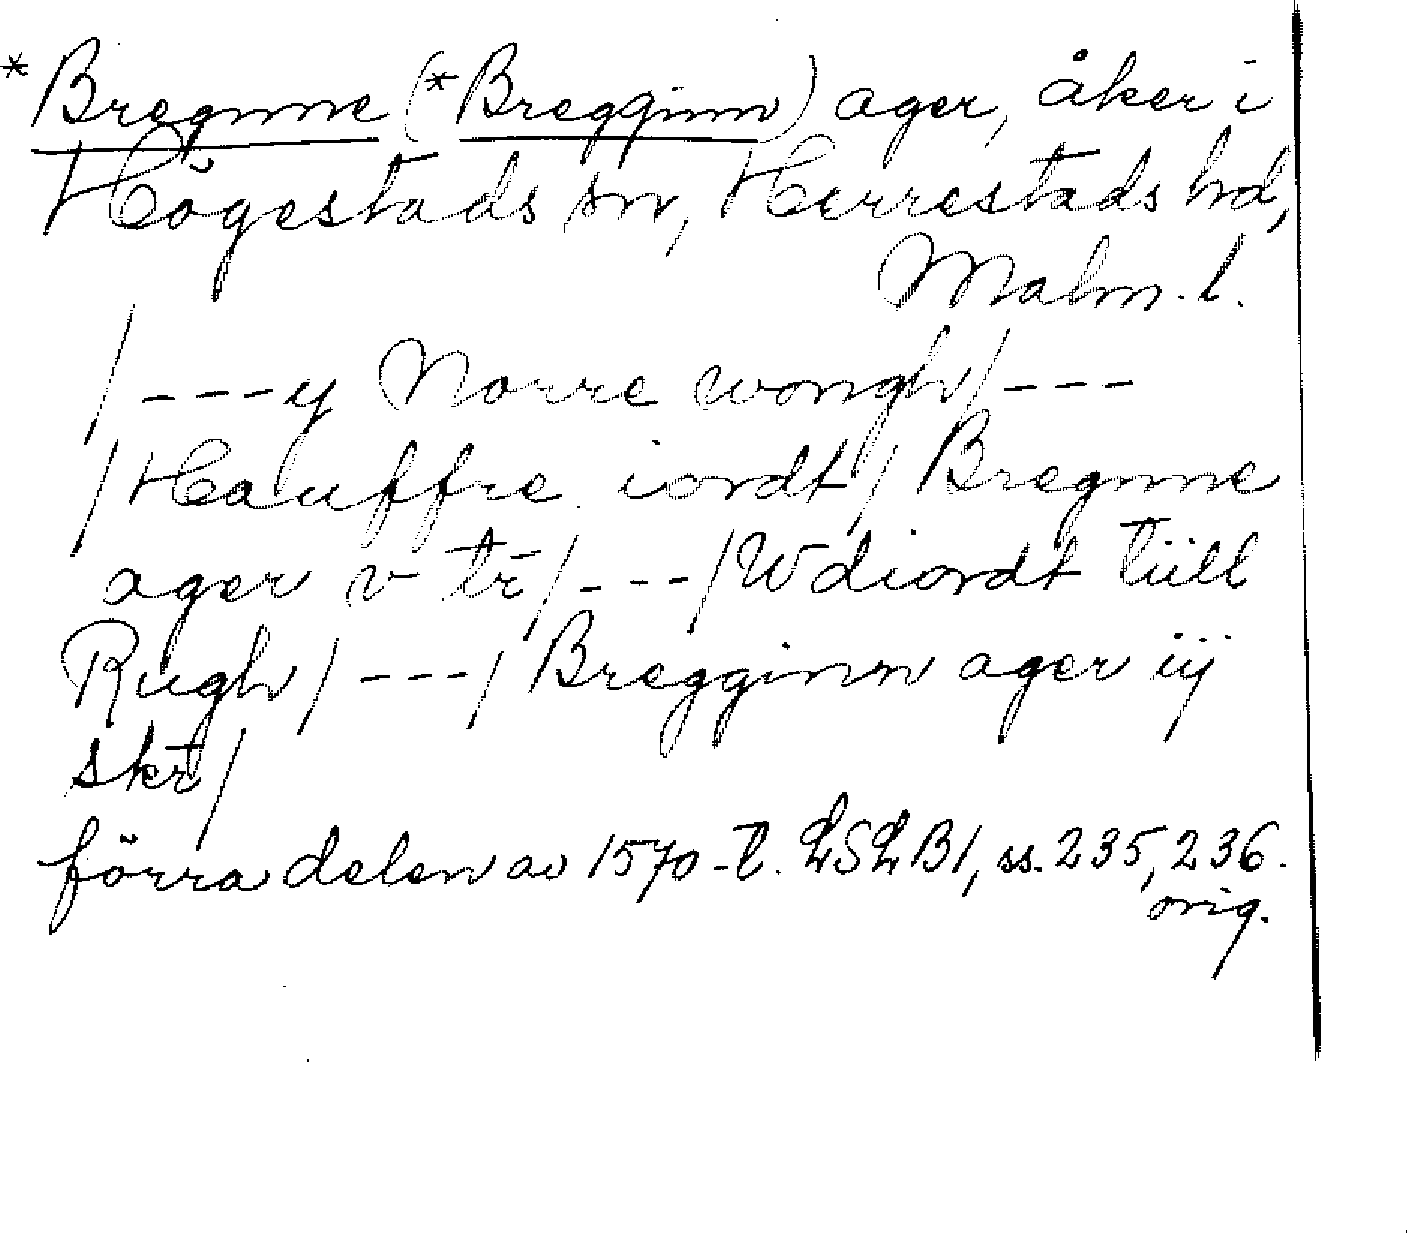 *Bregnne (*Bregginn) ager, åker i
Högestads sn, Herrestads hd,
Malm. l.
/ --- y Norre wongh / ---
/ Hauffre iordt / Bregnne
ager v tr̄ / --- / Wdiordt tiill
Rugh / --- / Bregginn ager iij
skr̄ /
förra delen av 1570-t. LSLB1, ss. 235, 236.
orig.